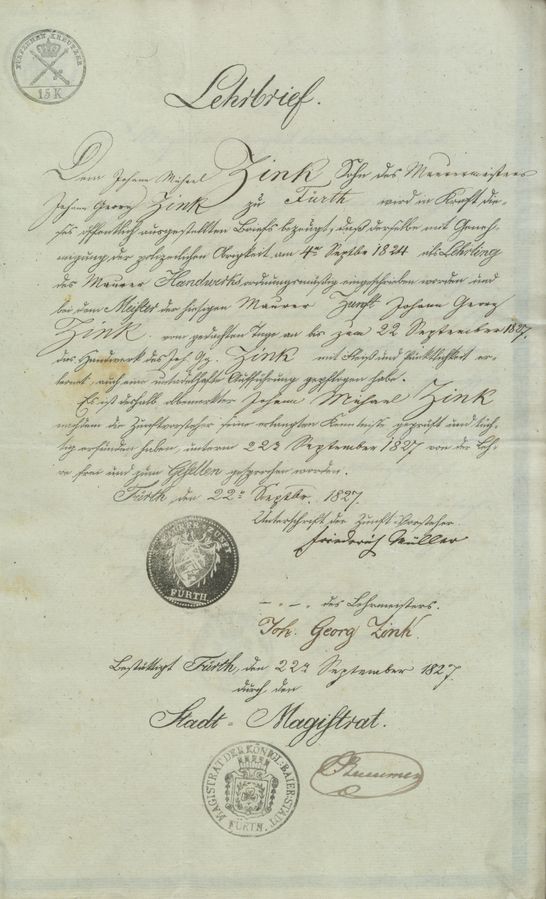 FÜNFZEHN KREUZER
15 K
Lehrbrief.
Dem Johann Michael Zink Sohn des Maurermeisters
Johann Georg Zink zu Fürth wird in Kraft die-
ses öffentlich ausgestellten Briefs bezeugt, daß derselbe mit Geneh-
migung der polizeylichen Obrigkeit am 4ten Septbr 1824 als Lehrling
des Maurer Handwerks ordnungsmäßig eingeschrieben worden und
bei dem Meister der hiesigen Maurer Zunft Johann Georg
Zink vom gedachten Tage an bis zum 22 September 1827.
das Handwerk des Joh. Gg. Zink mit Fleiß und Pünktlichkeit er-
lernt, auch eine untadelhafte Aufführung gepflogen habe.
Es ist deshalb obbemerkter Johann Michael Zink
nachdem die Zunftvorsteher seine erlangten Kenntniße geprüft und tüch-
tig erfunden haben, unterm 22ten September 1827 von der Leh-
re frei und zum Gesellen gesprochen worden.
Fürth, den 22ten Septbr. 1827.
Unterschrift der Zunft-Vorsteher.
Friederich Müller
FÜRTH.
des Lehrmeisters.
Joh. Georg Zink.
Bestättigt Fürth, den 22ten September 1827.
durch den
Stadt-Magistrat.
MAGISTRAT DER KÖNIGL. BAIER. STADT
FÜRTH.